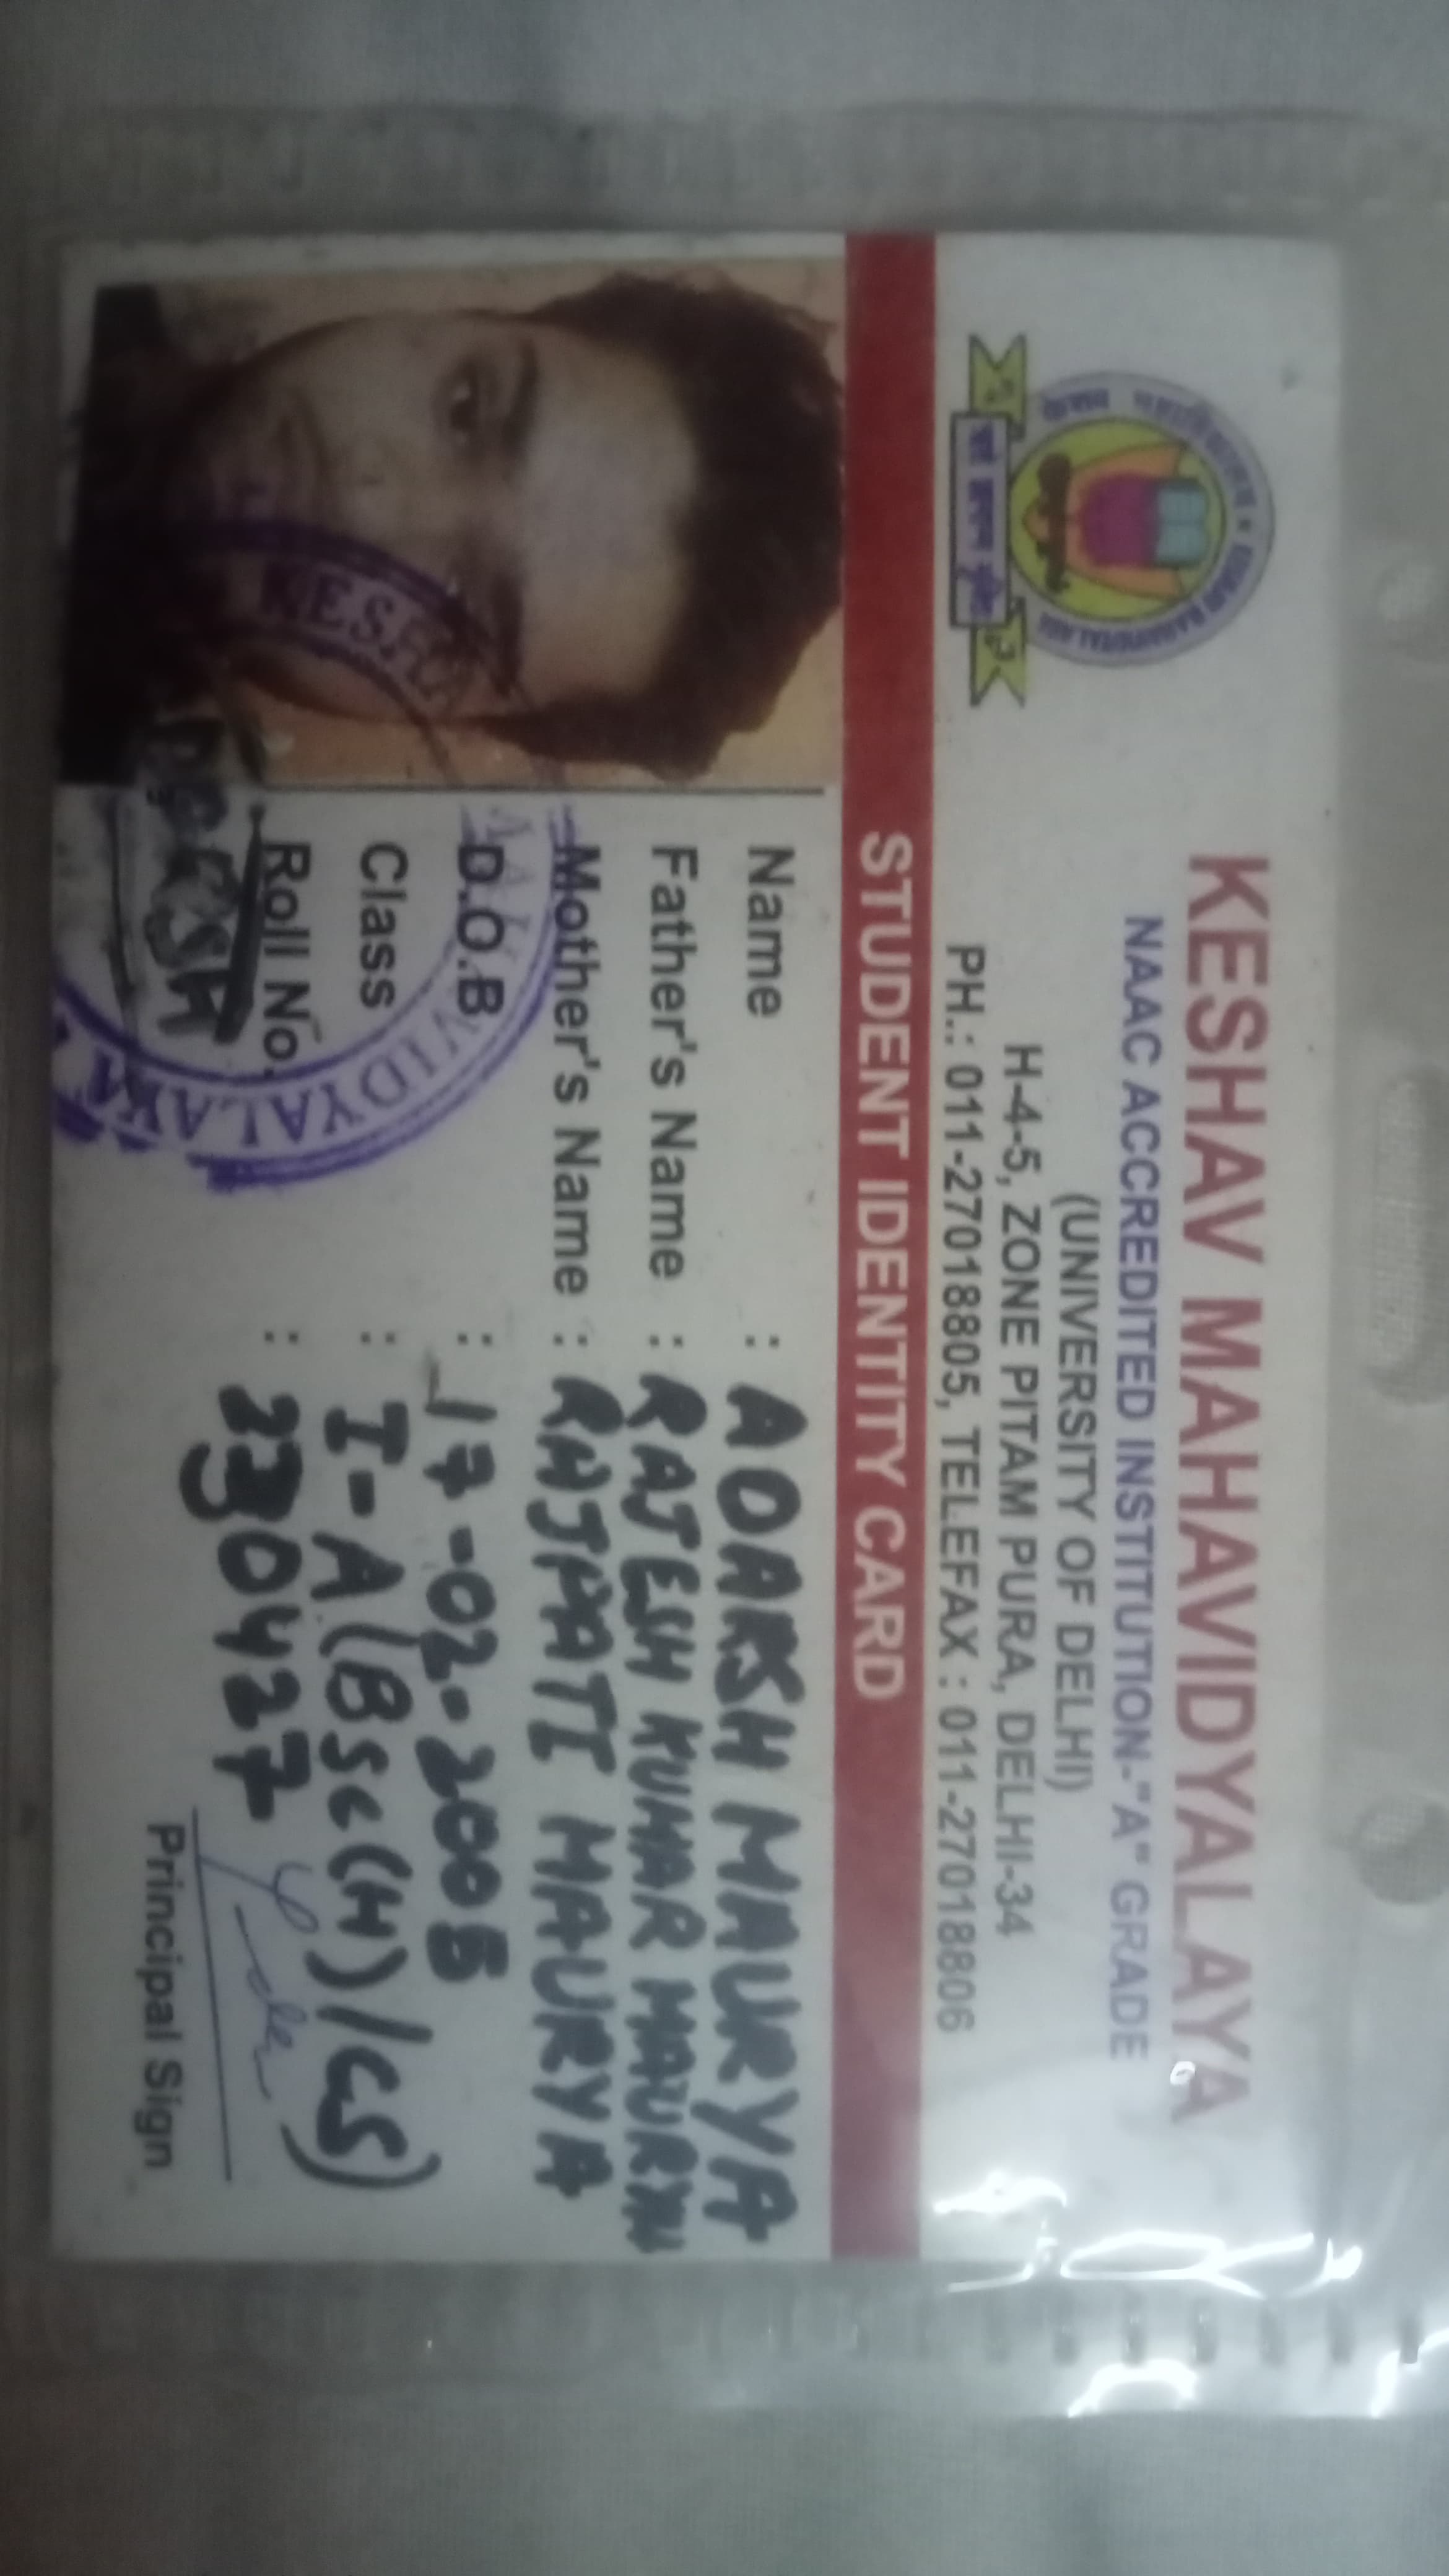 KESHAV MAHAVIDYALAYA
NAAC ACCREDITED INSTITUTION-"A" GRADE
(UNIVERSITY OF DELHI)
H-4-5, ZONE PITAM PURA, DELHI-34
PH.: 011-27018805, TELEFAX : 011-27018806
STUDENT IDENTITY CARD
Name : ADARSH MAURYA
Father's Name : RAJESH KUMAR MAURYA
Mother's Name : RAJPATI MAURYA
D.O.B : 17-02-2005
Class : I-A(BSc(H)/CS)
Roll No. : 2330427
Principal Sign
KESHA
VIDYALAYA